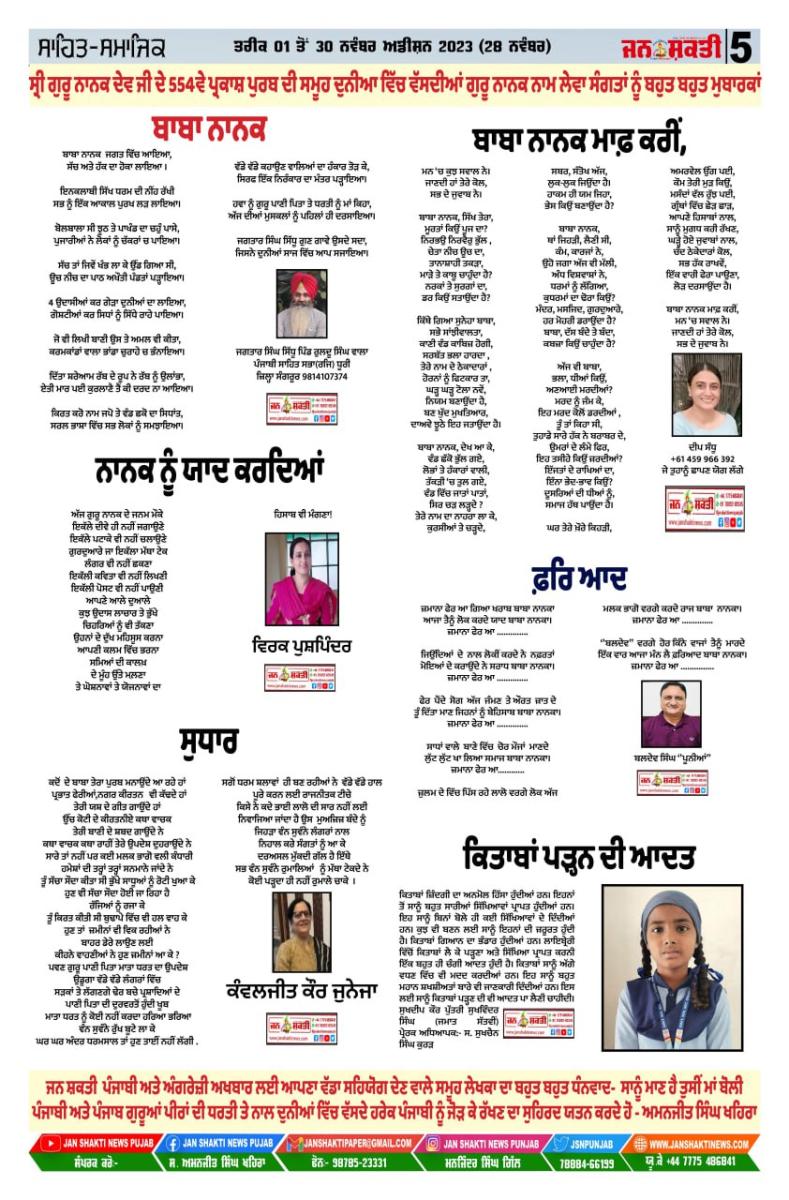 ਸਾਹਿਤ-ਸਮਾਜਿਕ
ਤਰੀਕ 01 ਤੋਂ 30 ਨਵੰਬਰ ਅਡੀਸ਼ਨ 2023 (28 ਨਵੰਬਰ)
ਜਨ ਸ਼ਕਤੀ 5
ਸ੍ਰੀ ਗੁਰੂ ਨਾਨਕ ਦੇਵ ਜੀ ਦੇ 554ਵੇ ਪ੍ਰਕਾਸ਼ ਪੁਰਬ ਦੀ ਸਮੂਹ ਦੁਨੀਆ ਵਿੱਚ ਵੱਸਦੀਆਂ ਗੁਰੂ ਨਾਨਕ ਨਾਮ ਲੇਵਾ ਸੰਗਤਾਂ ਨੂੰ ਬਹੁਤ ਬਹੁਤ ਮੁਬਾਰਕਾਂ
ਬਾਬਾ ਨਾਨਕ
ਬਾਬਾ ਨਾਨਕ ਜਗਤ ਵਿੱਚ ਆਇਆ,
ਸੱਚ ਅਤੇ ਹੱਕ ਦਾ ਹੋਕਾ ਲਾਇਆ ।
ਇਨਕਲਾਬੀ ਸਿੱਖ ਧਰਮ ਦੀ ਨੀਂਹ ਰੱਖੀ
ਸਭ ਨੂੰ ਇੱਕ ਆਕਾਲ ਪੁਰਖ ਲੜ ਲਾਇਆ।
ਬੋਲਬਾਲਾ ਸੀ ਝੂਠ ਤੇ ਪਾਖੰਡ ਦਾ ਚਹੁੰ ਪਾਸੇ,
ਪੁਜਾਰੀਆਂ ਨੇ ਲੋਕਾਂ ਨੂੰ ਚੱਕਰਾਂ ਚ ਪਾਇਆ।
ਸੱਚ ਤਾਂ ਜਿਵੇਂ ਖੰਭ ਲਾ ਕੇ ਉੱਡ ਗਿਆ ਸੀ,
ਊਚ ਨੀਚ ਦਾ ਪਾਠ ਅਖੌਤੀ ਪੰਡਤਾਂ ਪੜ੍ਹਾਇਆ।
4 ਉਦਾਸੀਆਂ ਕਰ ਗੇੜਾ ਦੁਨੀਆਂ ਦਾ ਲਾਇਆ,
ਗੋਸ਼ਟੀਆਂ ਕਰ ਸਿਧਾਂ ਨੂੰ ਸਿੱਧੇ ਰਾਹੇ ਪਾਇਆ।
ਜੋ ਵੀ ਲਿਖੀ ਬਾਣੀ ਉਸ ਤੇ ਅਮਲ ਵੀ ਕੀਤਾ,
ਕਰਮਕਾਂਡਾਂ ਵਾਲਾ ਭਾਂਡਾ ਚੁਰਾਹੇ ਚ ਭੰਨਾਇਆ।
ਦਿੱਤਾ ਸ਼ਰੇਆਮ ਰੱਬ ਦੇ ਰੂਪ ਨੇ ਰੱਬ ਨੂੰ ਉਲਾਂਭਾ,
ਏਤੀ ਮਾਰ ਪਈ ਕੁਰਲਾਣੈ ਤੈਂ ਕੀ ਦਰਦ ਨਾ ਆਇਆ।
ਕਿਰਤ ਕਰੋ ਨਾਮ ਜਪੋ ਤੇ ਵੰਡ ਛਕੋ ਦਾ ਸਿਧਾਂਤ,
ਸਰਲ ਭਾਸ਼ਾ ਵਿੱਚ ਸਭ ਲੋਕਾਂ ਨੂੰ ਸਮਝਾਇਆ।
ਵੱਡੇ ਵੱਡੇ ਕਹਾਉਣ ਵਾਲਿਆਂ ਦਾ ਹੰਕਾਰ ਤੋੜ ਕੇ,
ਸਿਰਫ ਇੱਕ ਨਿਰੰਕਾਰ ਦਾ ਮੰਤਰ ਪੜ੍ਹਾਇਆ।
ਹਵਾ ਨੂੰ ਗੁਰੂ ਪਾਣੀ ਪਿਤਾ ਤੇ ਧਰਤੀ ਨੂੰ ਮਾਂ ਕਿਹਾ,
ਅੱਜ ਦੀਆਂ ਮੁਸ਼ਕਲਾਂ ਨੂੰ ਪਹਿਲਾਂ ਹੀ ਦਰਸਾਇਆ।
ਜਗਤਾਰ ਸਿੰਘ ਸਿੱਧੂ ਗੁਣ ਗਾਵੇ ਉਸਦੇ ਸਦਾ,
ਜਿਸਨੇ ਦੁਨੀਆਂ ਸਾਜ ਵਿੱਚ ਆਪ ਸਜਾਇਆ।
ਜਗਤਾਰ ਸਿੰਘ ਸਿੱਧੂ ਪਿੰਡ ਰੁਲਦੂ ਸਿੰਘ ਵਾਲਾ
ਪੰਜਾਬੀ ਸਾਹਿਤ ਸਭਾ(ਰਜਿ) ਧੂਰੀ
ਜ਼ਿਲ੍ਹਾ ਸੰਗਰੂਰ 9814107374
ਬਾਬਾ ਨਾਨਕ ਮਾਫ਼ ਕਰੀਂ,
ਮਨ 'ਚ ਕੁਝ ਸਵਾਲ ਨੇ।
ਜਾਣਦੀ ਹਾਂ ਤੇਰੇ ਕੋਲ,
ਸਭ ਦੇ ਜੁਵਾਬ ਨੇ।
ਬਾਬਾ ਨਾਨਕ, ਸਿੱਖ ਤੇਰਾ,
ਮੂਰਤਾਂ ਕਿਉਂ ਪੂਜ ਦਾ?
ਨਿਰਭਉ ਨਿਰਵੈਰੁ ਭੁੱਲ ,
ਚੇਤਾ ਨੀਚ ਊਚ ਦਾ,
ਤਾਨਾਸ਼ਾਹੀ ਤਕੜਾ,
ਮਾੜੇ ਤੇ ਕਾਬੂ ਚਾਹੁੰਦਾ ਹੈ?
ਨਰਕਾਂ ਤੇ ਸੁਰਗਾਂ ਦਾ,
ਡਰ ਕਿਉਂ ਸਤਾਉਂਦਾ ਹੈ?
ਕਿੱਥੇ ਗਿਆ ਸੁਨੇਹਾ ਬਾਬਾ,
ਸਭੇ ਸਾਂਝੀਵਾਲਤਾ,
ਕਾਣੀ ਵੰਡ ਕਾਬਿਜ਼ ਹੋਗੀ,
ਸਰਬੱਤ ਭਲਾ ਹਾਰਦਾ ,
ਤੇਰੇ ਨਾਮ ਦੇ ਠੇਕਾਦਾਰਾਂ ,
ਹੋਰਨਾਂ ਨੂੰ ਫਿਟਕਾਰ ਤਾ,
ਘੜ੍ਹ ਘੜ੍ਹ ਟੋਲਾ ਨਵੇਂ,
ਨਿਯਮ ਬਣਾਉਂਦਾ ਹੈ,
ਬਣ ਖੁੱਦ ਮੁਖਤਿਆਰ,
ਦਾਅਵੇ ਝੂਠੇ ਇਹ ਜਤਾਉਂਦਾ ਹੈ।
ਬਾਬਾ ਨਾਨਕ, ਦੇਖ ਆ ਕੇ,
ਵੰਡ ਛੱਕੋ ਭੁੱਲ ਗਏ,
ਲੋਭਾਂ ਤੇ ਹੰਕਾਰਾਂ ਵਾਲੀ,
ਤੱਕੜੀ 'ਚ ਤੁਲ ਗਏ,
ਵੰਡ ਵਿੱਚ ਜਾਤਾਂ ਪਾਤਾਂ,
ਸਿਰ ਚੜ ਲੜਦੇ ?
ਤੇਰੇ ਨਾਮ ਦਾ ਨਾਹਰਾ ਲਾ ਕੇ,
ਕੁਰਸੀਆਂ ਤੇ ਚੜ੍ਹਦੇ,
ਸਬਰ, ਸੰਤੋਖ ਅੱਜ,
ਲੁਕ-ਲੁਕ ਜਿਉਂਦਾ ਹੈ।
ਹਾਕਮ ਹੀ ਯਮ ਜਿਹਾ,
ਭੇਸ ਕਿਉਂ ਬਣਾਉਂਦਾ ਹੈ?
ਬਾਬਾ ਨਾਨਕ,
ਥਾਂ ਜਿਹਤੀ, ਲੈਣੀ ਸੀ,
ਕੰਮ, ਕਾਰਜਾਂ ਨੇ,
ਉਹੋ ਜਗਾ ਅੱਜ ਵੀ ਮੱਲੀ,
ਅੰਧ ਵਿਸ਼ਵਾਸਾਂ ਨੇ,
ਧਰਮਾਂ ਨੂੰ ਲੱਗਿਆ,
ਕੁਧਰਮਾਂ ਦਾ ਢੋਰਾ ਕਿਉਂ?
ਮੰਦਰ, ਮਸਜਿਦ, ਗੁਰਦੁਆਰੇ,
ਹਰ ਮੋਹਰੀ ਡਰਾਉਂਦਾ ਹੈ?
ਬਾਬਾ, ਦੱਸ ਬੰਦੇ ਤੇ ਬੰਦਾ,
ਕਬਜ਼ਾ ਕਿਉਂ ਚਾਹੁੰਦਾ ਹੈ?
ਅੱਜ ਵੀ ਬਾਬਾ,
ਭਲਾ, ਧੀਆਂ ਕਿਉਂ,
ਅਣਆਈ ਮਰਦੀਆਂ?
ਮਰਦ ਨੂੰ ਜੰਮ ਕੇ,
ਇਹ ਮਰਦ ਕੋਲੋਂ ਡਰਦੀਆਂ ,
ਤੂੰ ਤਾਂ ਕਿਹਾ ਸੀ,
ਤੁਹਾਡੇ ਸਾਰੇ ਹੱਕ ਨੇ ਬਰਾਬਰ ਦੇ,
ਉਮਰਾਂ ਦੇ ਲੰਮੇ ਫਿਰ,
ਇਹ ਤਸੀਹੇ ਕਿਉਂ ਜਰਦੀਆਂ?
ਇੱਜਤਾਂ ਦੇ ਰਾਖਿਆਂ ਦਾ,
ਇੰਨਾ ਭੇਦ-ਭਾਵ ਕਿਉਂ?
ਦੂਸਰਿਆਂ ਦੀ ਧੀਆਂ ਨੂੰ,
ਸਮਾਜ ਹੱਥ ਪਾਉਂਦਾ ਹੈ।
ਘਰ ਤੇਰੇ ਖ਼ੋਰੇ ਕਿਹਤੀ,
ਅਮਰਵੇਲ ਉੱਗ ਪਈ,
ਕੌਮ ਤੇਰੀ ਮੁੜ ਕਿਉਂ,
ਮਸੰਦਾਂ ਵੱਲ ਰੁੱਝ ਪਈ,
ਗ੍ਰੰਥਾਂ ਵਿੱਚ ਛੇੜ ਛਾੜ,
ਆਪਣੇ ਹਿਸਾਬਾਂ ਨਾਲ,
ਸਾਨੂੰ ਮੁਗਧ ਕਰੀ ਰੱਖਣ,
ਘੜ੍ਹੇ ਹੋਏ ਜੁਵਾਬਾਂ ਨਾਲ,
ਚੰਦ ਠੇਕੇਦਾਰਾਂ ਕੋਲ,
ਸਭ ਹੱਕ ਰਾਖਵੇਂ,
ਇੱਕ ਵਾਰੀ ਫੇਰਾ ਪਾਉਣਾ,
ਲੋੜ ਦਰਸਾਉਂਦਾ ਹੈ।
ਬਾਬਾ ਨਾਨਕ ਮਾਫ਼ ਕਰੀਂ,
ਮਨ 'ਚ ਸਵਾਲ ਨੇ।
ਜਾਣਦੀ ਹਾਂ ਤੇਰੇ ਕੋਲ,
ਸਭ ਦੇ ਜੁਵਾਬ ਨੇ।
ਦੀਪ ਸੰਧੂ
+61 459 966 392
ਜੇ ਤੁਹਾਨੂੰ ਛਾਪਣ ਯੋਗ ਲੱਗੇ
ਨਾਨਕ ਨੂੰ ਯਾਦ ਕਰਦਿਆਂ
ਅੱਜ ਗੁਰੂ ਨਾਨਕ ਦੇ ਜਨਮ ਮੌਕੇ
ਇਕੱਲੇ ਦੀਵੇ ਹੀ ਨਹੀਂ ਜਗਾਉਣੇ
ਇਕੱਲੇ ਪਟਾਕੇ ਵੀ ਨਹੀਂ ਚਲਾਉਣੇ
ਗੁਰਦੁਆਰੇ ਜਾ ਇਕੱਲਾ ਮੱਥਾ ਟੇਕ
ਲੰਗਰ ਵੀ ਨਹੀਂ ਛਕਣਾ
ਇਕੱਲੀ ਕਵਿਤਾ ਵੀ ਨਹੀਂ ਲਿਖਣੀ
ਇਕੱਲੀ ਪੋਸਟ ਵੀ ਨਹੀਂ ਪਾਉਣੀ
ਆਪਣੇ ਆਲੇ ਦੁਆਲੇ
ਕੁਝ ਉਦਾਸ ਲਾਚਾਰ ਤੇ ਭੁੱਖੇ
ਚਿਹਰਿਆਂ ਨੂੰ ਵੀ ਤੱਕਣਾ
ਉਹਨਾਂ ਦੇ ਦੁੱਖ ਮਹਿਸੂਸ ਕਰਨਾ
ਆਪਣੀ ਕਲਮ ਵਿੱਚ ਭਰਨਾ
ਸਮਿਆਂ ਦੀ ਕਾਲਖ਼
ਦੇ ਮੂੰਹ ਉੱਤੇ ਮਲਣਾ
ਤੇ ਘੋਸ਼ਨਾਵਾਂ ਤੇ ਯੋਜਨਾਵਾਂ ਦਾ
ਹਿਸਾਬ ਵੀ ਮੰਗਣਾ!
ਵਿਰਕ ਪੁਸ਼ਪਿੰਦਰ
ਫ਼ਰਿ ਆਦ
ਜ਼ਮਾਨਾ ਫੇਰ ਆ ਗਿਆ ਖਰਾਬ ਬਾਬਾ ਨਾਨਕਾ
ਆਜਾ ਤੈਨੂੰ ਲੋਕ ਕਰਦੇ ਯਾਦ ਬਾਬਾ ਨਾਨਕਾ।
ਜ਼ਮਾਨਾ ਫੇਰ ਆ ..............
ਜਿਉਂਦਿਆਂ ਦੇ ਨਾਲ ਲੋਕੀਂ ਕਰਦੇ ਨੇ ਨਫ਼ਰਤਾਂ
ਮੋਇਆਂ ਦੇ ਕਰਾਉਂਦੇ ਨੇ ਸਰਾਧ ਬਾਬਾ ਨਾਨਕਾ।
ਜ਼ਮਾਨਾ ਫੇਰ ਆ ..............
ਫੇਰ ਪੈਂਦੇ ਸੋਗ ਅੱਜ ਜੰਮਣ ਤੇ ਔਰਤ ਜ਼ਾਤ ਦੇ
ਤੂੰ ਦਿੱਤਾ ਮਾਣ ਜਿਹਨਾਂ ਨੂੰ ਬੇਹਿਸਾਬ ਬਾਬਾ ਨਾਨਕਾ।
ਜ਼ਮਾਨਾ ਫੇਰ ਆ ..............
ਸਾਧਾਂ ਵਾਲੇ ਬਾਣੇ ਵਿੱਚ ਚੋਰ ਮੌਜਾਂ ਮਾਣਦੇ
ਲੁੱਟ ਲੁੱਟ ਖਾ ਲਿਆ ਸਮਾਜ ਬਾਬਾ ਨਾਨਕਾ।
ਜ਼ਮਾਨਾ ਫੇਰ ਆ..............
ਜ਼ੁਲਮ ਦੇ ਵਿੱਚ ਪਿੱਸ ਰਹੇ ਲਾਲੋ ਵਰਗੇ ਲੋਕ ਅੱਜ
ਮਲਕ ਭਾਗੋ ਵਰਗੇ ਕਰਦੇ ਰਾਜ ਬਾਬਾ ਨਾਨਕਾ।
ਜ਼ਮਾਨਾ ਫੇਰ ਆ ..............
"ਬਲਦੇਵ" ਵਰਗੇ ਹੋਰ ਕਿੰਨੇ ਵਾਜਾਂ ਤੈਨੂੰ ਮਾਰਦੇ
ਇੱਕ ਵਾਰ ਆਜਾ ਮੰਨ ਲੈ ਫ਼ਰਿਆਦ ਬਾਬਾ ਨਾਨਕਾ।
ਜ਼ਮਾਨਾ ਫੇਰ ਆ ..............
ਬਲਦੇਵ ਸਿੰਘ "ਪੂਨੀਆਂ"
ਸੁਧਾਰ
ਕਦੋਂ ਦੇ ਬਾਬਾ ਤੇਰਾ ਪੁਰਬ ਮਨਾਉਂਦੇ ਆ ਰਹੇ ਹਾਂ
ਪ੍ਰਭਾਤ ਫੇਰੀਆਂ,ਨਗਰ ਕੀਰਤਨ ਵੀ ਕੱਢਦੇ ਹਾਂ
ਤੇਰੀ ਯਸ਼ ਦੇ ਗੀਤ ਗਾਉਂਦੇ ਹਾਂ
ਉੱਚ ਕੋਟੀ ਦੇ ਕੀਰਤਨੀਏ ਕਥਾ ਵਾਚਕ
ਤੇਰੀ ਬਾਣੀ ਦੇ ਸ਼ਬਦ ਗਾਉਂਦੇ ਨੇ
ਕਥਾ ਵਾਚਕ ਕਥਾ ਰਾਹੀਂ ਤੇਰੇ ਉਪਦੇਸ਼ ਦੁਹਰਾਉਂਦੇ ਨੇ
ਸਾਰੇ ਤਾਂ ਨਹੀਂ ਪਰ ਕਈ ਮਲਕ ਭਾਗੋ ਵਲੀ ਕੰਧਾਰੀ
ਹਮੇਸ਼ਾਂ ਦੀ ਤਰ੍ਹਾਂ ਤਰ੍ਹਾਂ ਸਨਮਾਨੇ ਜਾਂਦੇ ਨੇ
ਤੂੰ ਸੱਚਾ ਸੌਦਾ ਕੀਤਾ ਸੀ ਭੁੱਖੇ ਸਾਧੂਆਂ ਨੂੰ ਰੋਟੀ ਖੁਆ ਕੇ
ਹੁਣ ਵੀ ਸੱਚਾ ਸੌਦਾ ਹੋਈ ਜਾ ਰਿਹਾ ਹੈ
ਰੱਜਿਆਂ ਨੂੰ ਰਜਾ ਕੇ
ਤੂੰ ਕਿਰਤ ਕੀਤੀ ਸੀ ਬੁਢਾਪੇ ਵਿੱਚ ਵੀ ਹਲ ਵਾਹ ਕੇ
ਹੁਣ ਤਾਂ ਜ਼ਮੀਨਾਂ ਵੀ ਵਿਕ ਰਹੀਆਂ ਨੇ
ਬਾਹਰ ਡੇਰੇ ਲਾਉਣ ਲਈ
ਕੀਹਨੇ ਵਾਹਣੀਆਂ ਨੇ ਹੁਣ ਜ਼ਮੀਨਾਂ ਆ ਕੇ ?
ਪਵਣ ਗੁਰੂ ਪਾਣੀ ਪਿਤਾ ਮਾਤਾ ਧਰਤ ਦਾ ਉਪਦੇਸ਼
ਉਡੂਗਾ ਵੱਡੇ ਵੱਡੇ ਲੰਗਰਾਂ ਵਿੱਚ
ਸੜਕਾਂ ਤੇ ਲੱਗਣਗੇ ਢੇਰ ਬਚੇ ਪ੍ਰਸ਼ਾਦਿਆਂ ਦੇ
ਪਾਣੀ ਪਿਤਾ ਦੀ ਦੁਰਵਰਤੋਂ ਹੁੰਦੀ ਖੂਬ
ਮਾਤਾ ਧਰਤ ਨੂੰ ਕੋਈ ਨਹੀਂ ਕਰਦਾ ਹਰਿਆ ਭਰਿਆ
ਵੰਨ ਸੁਵੰਨੇ ਰੁੱਖ ਬੂਟੇ ਲਾ ਕੇ
ਘਰ ਘਰ ਅੰਦਰ ਧਰਮਸਾਲ ਤਾਂ ਹੁਣ ਤਾਈਂ ਨਹੀਂ ਲੱਗੀ .
ਸਗੋਂ ਧਰਮ ਸ਼ਲਾਵਾਂ ਹੀ ਬਣ ਰਹੀਆਂ ਨੇ ਵੱਡੇ ਵੱਡੇ ਹਾਲ
ਪੂਰੇ ਕਰਨ ਲਈ ਰਾਜਨੀਤਕ ਟੀਚੇ
ਕਿਸੇ ਨੇ ਕਦੇ ਭਾਈ ਲਾਲੋ ਦੀ ਸਾਰ ਨਹੀਂ ਲਈ
ਨਿਵਾਜਿਆ ਜਾਂਦਾ ਹੈ ਉਸ ਮੁਅਜ਼ਿਜ਼ ਬੰਦੇ ਨੂੰ
ਜਿਹੜਾ ਵੰਨ ਸੁਵੰਨੇ ਲੰਗਰਾਂ ਨਾਲ
ਨਿਹਾਲ ਕਰੇ ਸੰਗਤਾਂ ਨੂੰ ਆ ਕੇ
ਦਰਅਸਲ ਮੁੱਕਦੀ ਗੱਲ ਹੈ ਇੱਥੇ
ਸਭ ਵੰਨ ਸੁਵੰਨੇ ਰੁਮਾਲਿਆਂ ਨੂੰ ਮੱਥਾ ਟੇਕਦੇ ਨੇ
ਕੋਈ ਪੜ੍ਹਦਾ ਹੀ ਨਹੀਂ ਰੁਮਾਲੇ ਚਾਕੇ ।
ਕੰਵਲਜੀਤ ਕੌਰ ਜੁਨੇਜਾ
ਕਿਤਾਬਾਂ ਪੜ੍ਹਨ ਦੀ ਆਦਤ
ਕਿਤਾਬਾਂ ਜ਼ਿੰਦਗੀ ਦਾ ਅਨਮੋਲ ਹਿੱਸਾ ਹੁੰਦੀਆਂ ਹਨ। ਇਹਨਾਂ
ਤੋਂ ਸਾਨੂੰ ਬਹੁਤ ਸਾਰੀਆਂ ਸਿੱਖਿਆਵਾਂ ਪ੍ਰਾਪਤ ਹੁੰਦੀਆਂ ਹਨ।
ਇਹ ਸਾਨੂੰ ਬਿਨਾਂ ਬੋਲੇ ਹੀ ਕਈ ਸਿੱਖਿਆਵਾਂ ਦੇ ਦਿੰਦੀਆਂ
ਹਨ। ਕੁਝ ਵੀ ਬਣਨ ਲਈ ਸਾਨੂੰ ਇਹਨਾਂ ਦੀ ਜ਼ਰੂਰਤ ਹੁੰਦੀ
ਹੈ। ਕਿਤਾਬਾਂ ਗਿਆਨ ਦਾ ਭੰਡਾਰ ਹੁੰਦੀਆਂ ਹਨ। ਲਾਇਬ੍ਰੇਰੀ
ਵਿੱਚੋਂ ਕਿਤਾਬਾਂ ਲੈ ਕੇ ਪੜ੍ਹਣਾ ਅਤੇ ਸਿੱਖਿਆ ਪ੍ਰਾਪਤ ਕਰਨੀ
ਇੱਕ ਬਹੁਤ ਹੀ ਚੰਗੀ ਆਦਤ ਹੁੰਦੀ ਹੈ। ਕਿਤਾਬਾਂ ਸਾਨੂੰ ਅੱਗੇ
ਵਧਣ ਵਿੱਚ ਵੀ ਮਦਦ ਕਰਦੀਆਂ ਹਨ। ਇਹ ਸਾਨੂੰ ਬਹੁਤ
ਮਹਾਨ ਸ਼ਖਸ਼ੀਅਤਾਂ ਬਾਰੇ ਵੀ ਜਾਣਕਾਰੀ ਦਿੰਦੀਆਂ ਹਨ। ਇਸ
ਲਈ ਸਾਨੂੰ ਕਿਤਾਬਾਂ ਪੜ੍ਹਣ ਦੀ ਵੀ ਆਦਤ ਪਾ ਲੈਣੀ ਚਾਹੀਦੀ।
ਸੁਖਦੀਪ ਕੌਰ ਪੁੱਤਰੀ ਸੁਖਵਿੰਦਰ
ਸਿੰਘ (ਜਮਾਤ ਸੱਤਵੀਂ)
ਪ੍ਰੇਰਕ ਅਧਿਆਪਕ:- ਸ. ਸੁਖਚੈਨ
ਸਿੰਘ ਕੁਰੜ
ਜਨ ਸ਼ਕਤੀ ਪੰਜਾਬੀ ਅਤੇ ਅੰਗਰੇਜ਼ੀ ਅਖਬਾਰ ਲਈ ਆਪਣਾ ਵੱਡਾ ਸਹਿਯੋਗ ਦੇਣ ਵਾਲੇ ਸਮੂਹ ਲੇਖਕਾ ਦਾ ਬਹੁਤ ਬਹੁਤ ਧੰਨਵਾਦ- ਸਾਨੂੰ ਮਾਣ ਹੈ ਤੁਸੀਂ ਮਾਂ ਬੋਲੀ
ਪੰਜਾਬੀ ਅਤੇ ਪੰਜਾਬ ਗੁਰੂਆਂ ਪੀਰਾਂ ਦੀ ਧਰਤੀ ਤੇ ਨਾਲ ਦੁਨੀਆਂ ਵਿੱਚ ਵੱਸਦੇ ਹਰੇਕ ਪੰਜਾਬੀ ਨੂੰ ਜੋੜ ਕੇ ਰੱਖਣ ਦਾ ਸੁਹਿਰਦ ਯਤਨ ਕਰਦੇ ਹੋ - ਅਮਨਜੀਤ ਸਿੰਘ ਖਹਿਰਾ
JAN SHAKTI NEWS PUJAB JAN SHAKTI NEWS PUJAB JANSHAKTIPAPER@GMAIL.COM JAN SHAKTI NEWS PUJAB JSNPUNJAB WWW.JANSHAKTINEWS.COM
ਸੰਪਰਕ ਕਰੋ:- ਸ. ਅਮਨਜੀਤ ਸਿੰਘ ਖਹਿਰਾ ਫੋਨ:- 98785-23331 ਮਨਜਿੰਦਰ ਸਿੰਘ ਗਿੱਲ 78884-66199 ਯੂ.ਕੇ +44 7775 486841